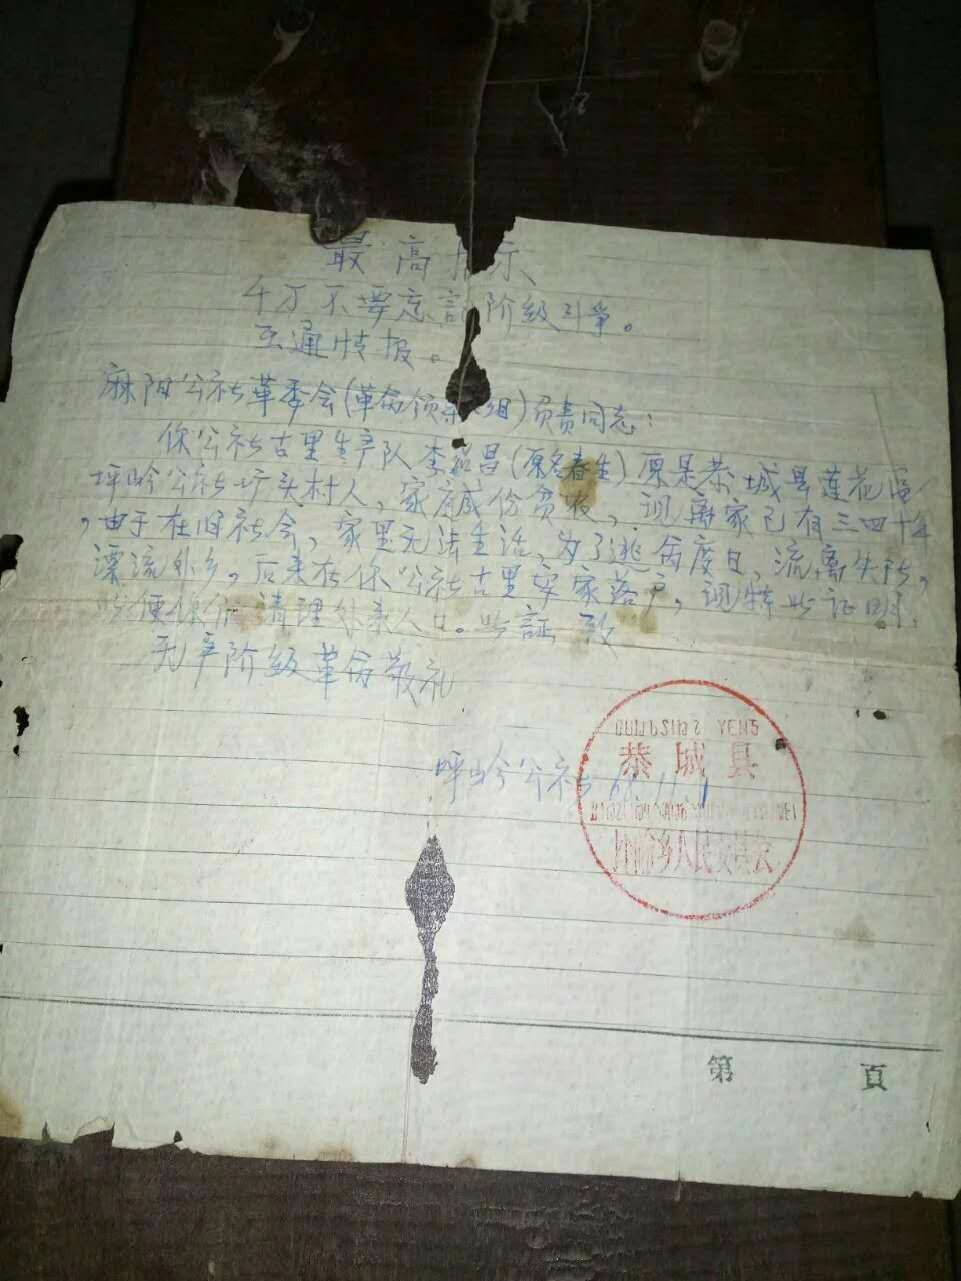 最高指示
千万不要忘記阶级斗争。
互通情报。
麻阳公社革委会(革命领导小组)负责同志:
你公社古里生产队李 昌(原名春生)原是恭城县莲花区
坪岭公社圹头村人,家庭成份贫农,现离家已有三四十年
,由于在旧社会,家里无法生活,为了逃命度日,流离失所,
漂流外乡。后来在你公社古里安家落户,现特此证明,
以便你们清理外来人口。此証 致
无产阶级革命敬礼
坪岭公社 68.11.
恭城县
岭乡人民委员会
第 頁